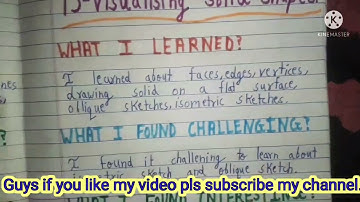 15-Visualising Solid Shapes
KINEMASTER
WHAT I LEARNED?
I learned about faces, edges, vertices,
drawing solid on a flat surface,
oblique sketches, isometric sketches.
WHAT I FOUND CHALLENGING?
I found it challening to learn about
isometric sketch and oblique sketch.
Guys if you like my video pls subscribe my channel.